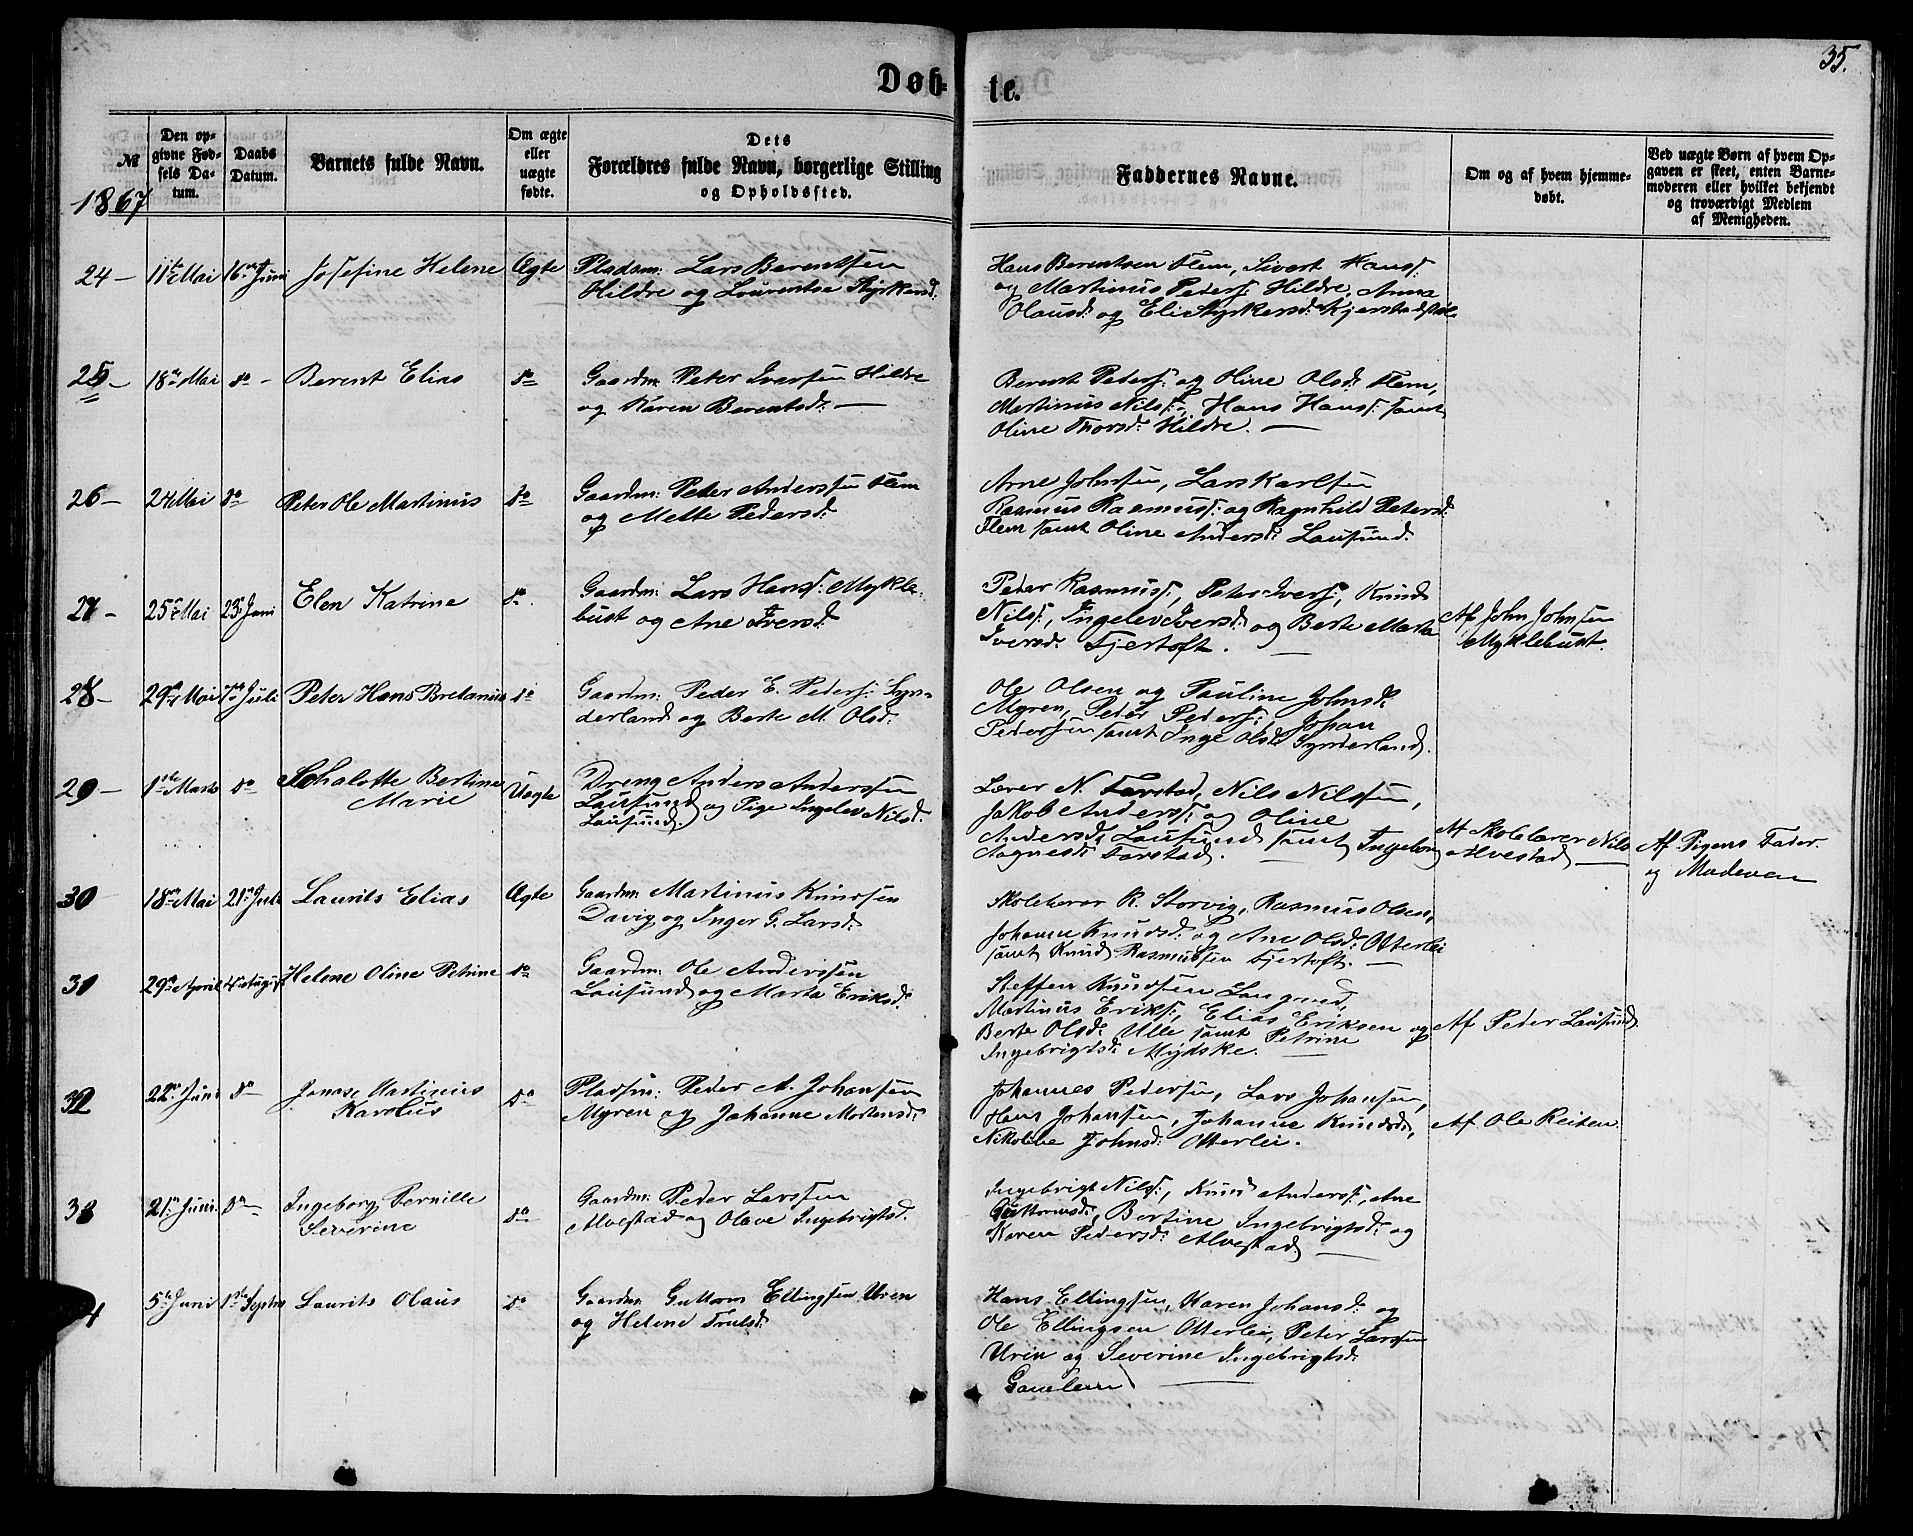 Døb-
te.
35.
№
Den op-
givne Fød-
sels Da-
tum.
Daabs
Datum.
Barnets fulde Navn.
Om ægte
eller
uægte
fødte.
Dets
Forældres fulde Navn, borgerlige Stilling
og Opholdssted.
Faddernes Navne.
Om og af hvem hjemme-
døbt.
Ved uægte Børn af hvem Op-
gaven er skeet, enten Barne-
moderen eller hvilket bekjendt
og troværdigt Medlem
af Menigheden.
1867
24 - 11te Mai 16de Juni Josefine Helene Ægte
Pladsm: Lars Berentsen
Hildre og Laurentse Styrkersd:
Hans Berentsen Flem, Sivert Hanss:
og Martinus Peders: Hildre, Anna
Olausd: og Eli Styrkersd:
25 - 18de Mai do - Berent Elias do
Gaardm: Peter Iversen Hildre
og Karen Berentsd: -
Berent Peders: og Oline Olsd: Flem,
Martinus Nilss:, Hans Hanss: samt
Oline Thorsd: Hildre. -
26 - 24 Mai do Peter Ole Martinus do
Gaardm: Peter Anderssen Flem
og Mette Pedersd:
Arne Johnsen, Lars Karlsen
Rasmus Rasmuss: og Ragnhild Petersd:
Flem samt Oline Andersd: Lausund.
27 - 25de Mai 23de Juni Elen Katrine do.
Gaardm: Lars Hanss: Mykle-
bust og Ane Iversd:
Peder Rasmuss:, Peter Ivers:, Knud
Nilss:, Ingelev Iversd: og Berte Marta
Iversd: Fjertoft. -
Af John Johnsen
Myklebust.
28 - 29de Mai 7de Juli Peter Hans Bretanus do
Gaardm: Peder E. Peders: Syn-
derland og Berte M. Olsd:
Ole Olsen og Pauline Johnsd:
Myren, Peder Peders:, Johan
Pedersen samt Inge Olsd: Synderland.
29 - 1ste Marts do Schalotte Bertine
Marie
Uægte
Dreng Anders Anderssen
Lausund og Pige Ingelev Nilsd:
Lausund.
Lærer N. Farstad, Nils Nilssen,
Jakob Anderss: og Oline
Andersd: Lausund samt Ingeborg
Aagnesd: Farstad. -
Af Skolelærer Nils
Alvestad -
Af Pigens Fader
og Moderen
30 18de Mai 21de Juli Laurits Elias Ægte
Gaardm: Martinus Knudsen
Davig og Inger G. Larsd:
Skolelærer R. Storvig, Rasmus Olsen,
Johanne Knudsd: og Ane Olsd: Otterlei
samt Knud Rasmussen Fjertoft. -
31 29de April 4de August Helene Oline Petrine do
Gaardm: Ole Anderssen
Lausund og Marta Eriksd:
Steffen Knudsen
Martinus Eriks:, Elias Eriksen og
Berte Olsd: Ulle samt Petrine
Ingebrigtsd: Mydske. -
Af Peder Lausund
32 22de Juni do Jonas Martinus
Karolius
do
Pladsm: Peder A. Johansen
Myren og Johanne Mortensd:
Johannes Pedersen, Lars Johansen,
Hans Johansen, Johanne Knudsd:,
Nikoline Johnsd: Otterlei.
Af Ole Reiten
33 21de Juni do Ingeborg Pernille
Severine
do
Gaardm: Peder Larssen
Alvestad og Olave Ingebrigtsd:
Ingebrigt Nilss:, Knud Anderss:, Ane
Guttormsd:, Bertine Ingebrigtsd: og
Karen Pedersd: Alvestad -
4 5te Juni 1ste Septbr Laurits Olaus do
Gaardm: Guttorm Ellingsen Uren
og Helene Trulsd:
Hans Ellingsen, Karen Johansd: og
Ole Ellingsen Otterlei, Peter Larssen
Uren og Severine Ingebrigtsd:
Gamlem -